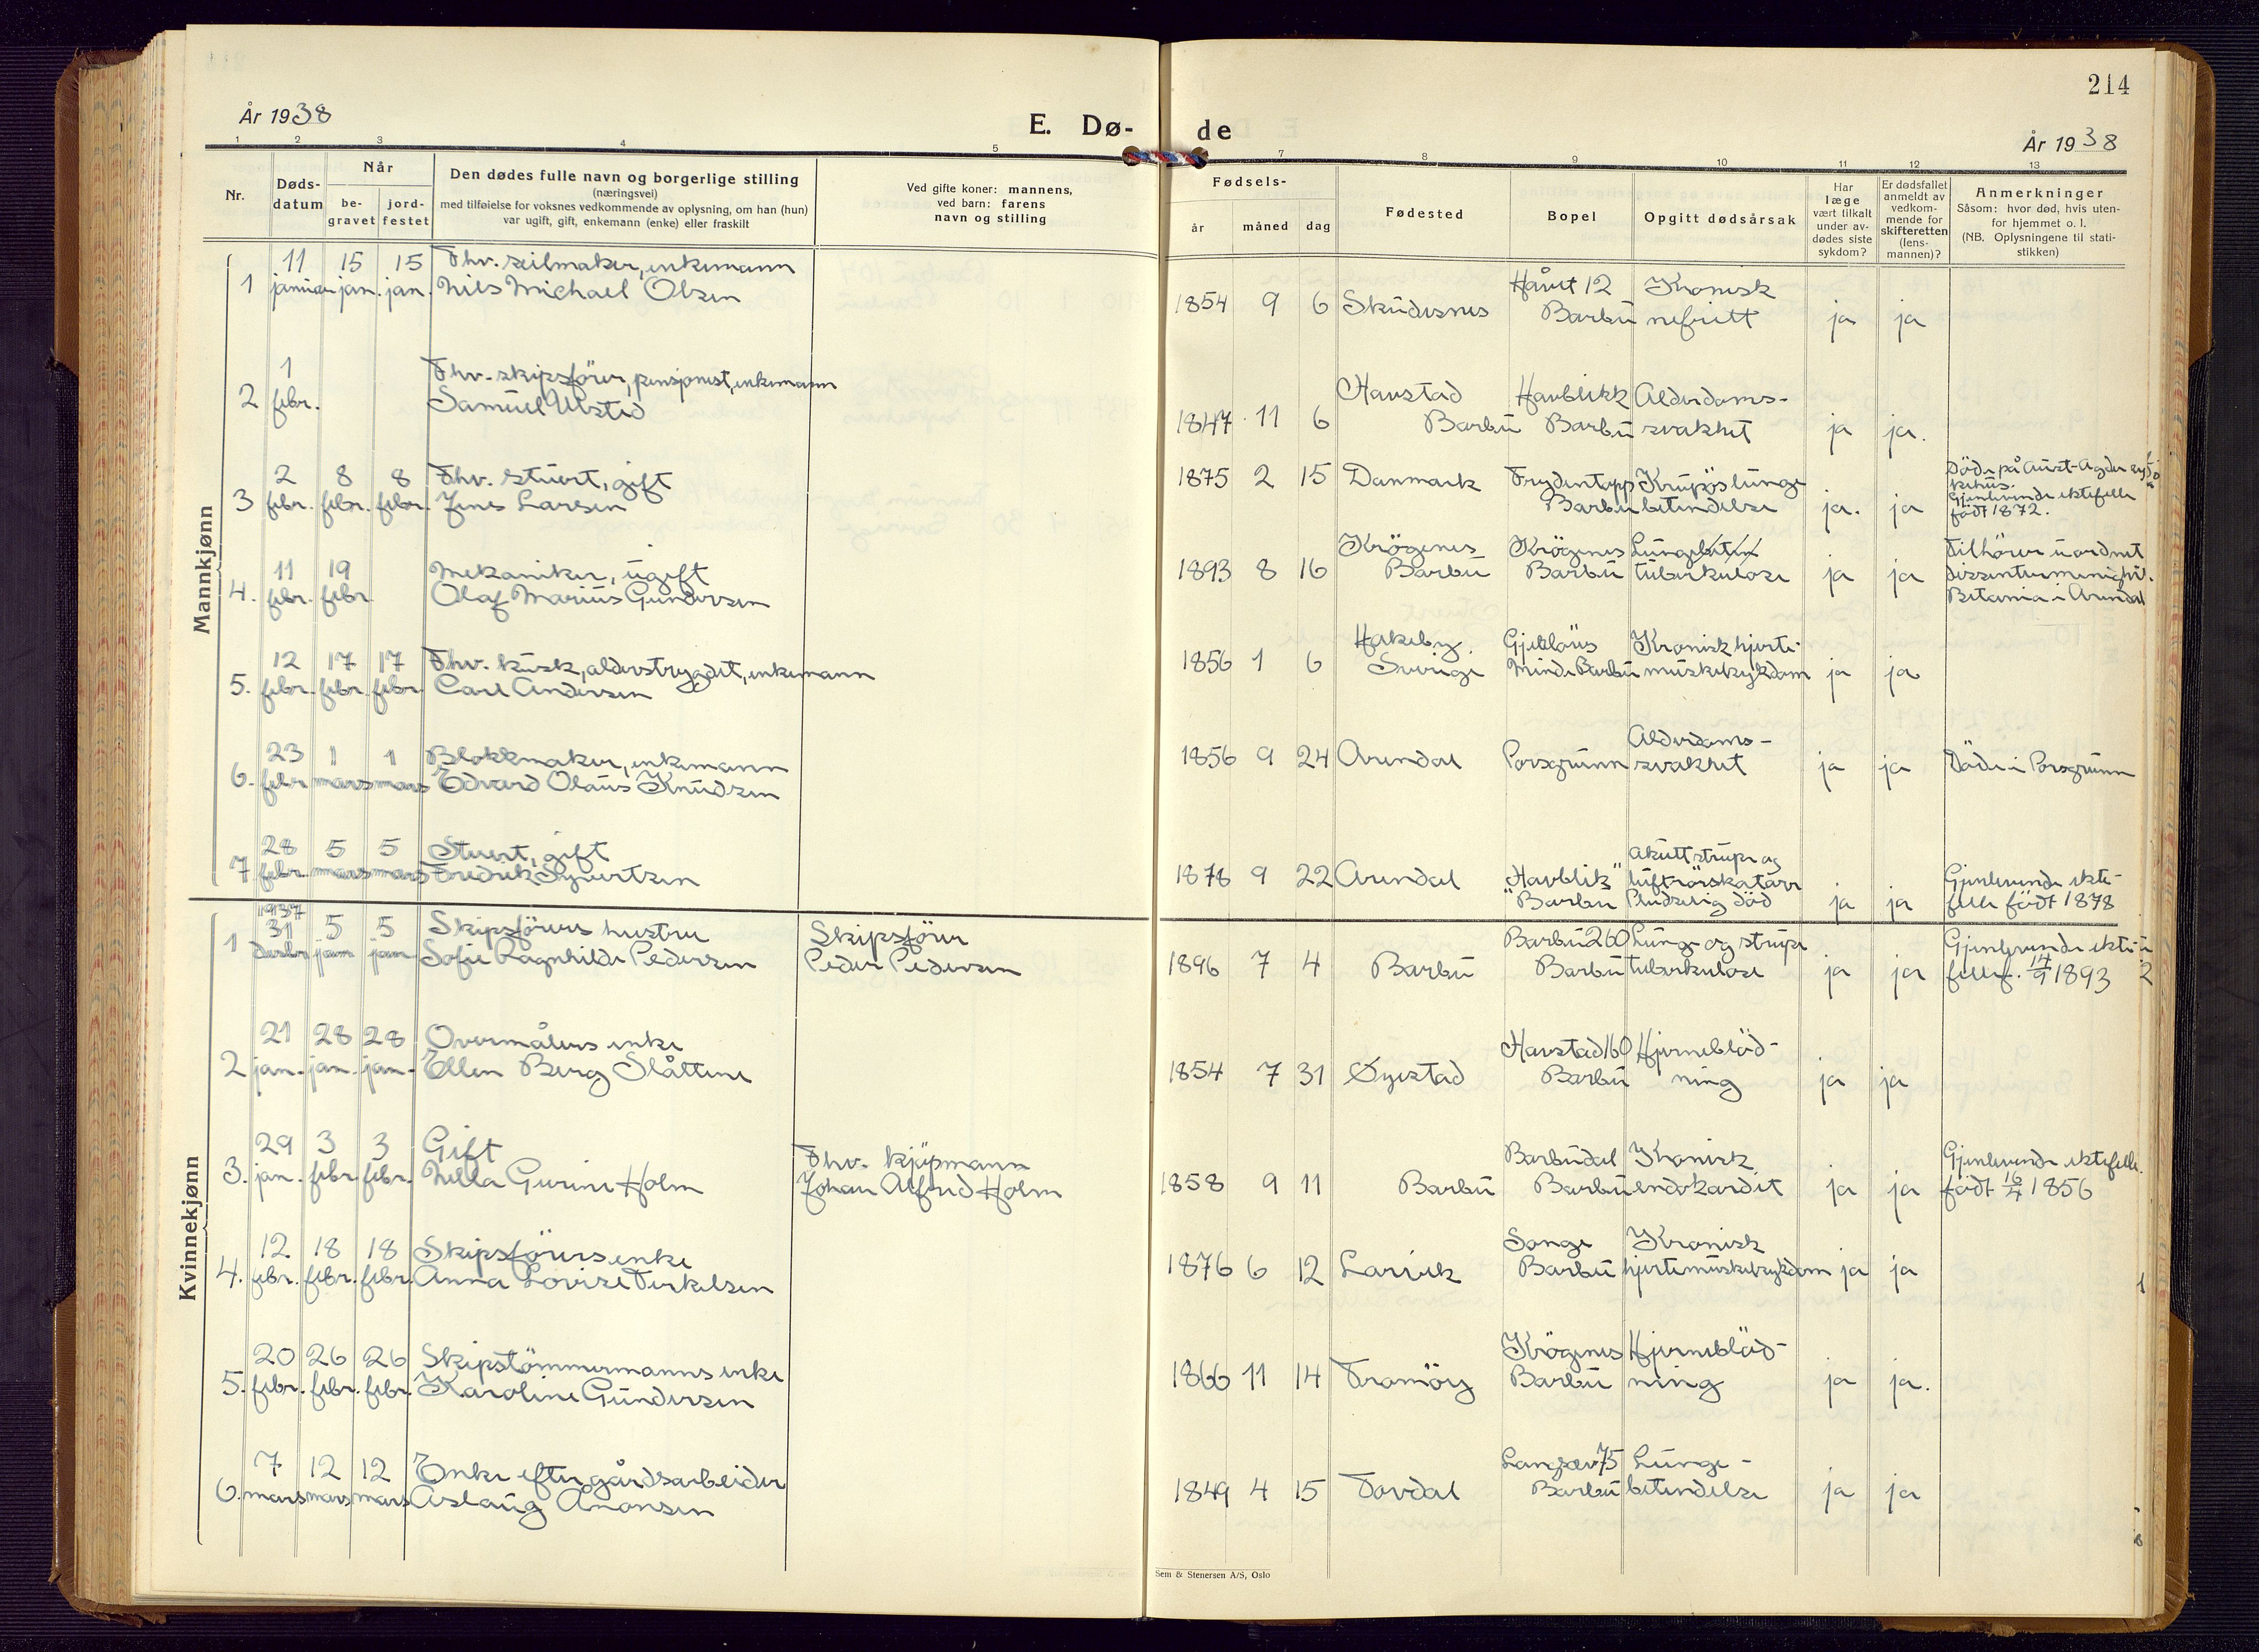 214
År 1938
E. Dø-
de
År 1938
1 2 3 4 5 7 8 9 10 11 12 13
Nr.
Døds-
datum
Når
be-
gravet
jord-
festet
Den dødes fulle navn og borgerlige stilling
(næringsvei)
med tilføielse for voksnes vedkommende av oplysning, om han (hun)
var ugift, gift, enkemann (enke) eller fraskilt
Ved gifte koner: mannens,
ved barn: farens
navn og stilling
Fødsels-
år måned dag
Fødested
Bopel
Opgitt dødsårsak
Har
læge
vært tilkalt
under av-
dødes siste
sykdom?
Er dødsfallet
anmeldt av
vedkom-
mende for
skifteretten
(lens-
mannen)?
Anmerkninger
Såsom: hvor død, hvis uten-
for hjemmet o. l.
(NB. Oplysningene til stati-
stikken)
Mannkjønn
11 15 15 Fhv. seilmaker, enkemann
1 januar jan. jan. Nils Michael Olsen
Håvet 12 Kronisk
1854 9 6 Skudesnes Barbu nefritt ja ja
1 Fhv. skipsfører, pensjonist, enkemann
2 febr. Samuel Ulsted
Harstad Havblikk Alderdoms-
1847 11 6 Barbu Barbu svakhet ja ja.
2 8 8 Fhv. stuert, gift
3 febr. febr. febr. Jens Larsen
1875 2 15 Danmark Frydentopp Krupøs lunge
Barbu betendelse ja. ja
Døde på Aust-Agder sy-
kehus.
Gjenlevende ektefelle
født 1872.
11 19 Mekaniker, ugift
4. febr. febr. Olaf Marius Gundersen
Krøgenes Krøgenes Lunge
1893 8 16 Barbu Barbu tuberkulose ja ja
Tilhører uordnet
dissentermenighet.
Betania i Arendal
12 17 17 Fhv. kusk, alderstrygdet, enkemann
5. febr. febr. febr. Carl Andersen
Hakeby. Gjelläus Kronisk hjerte-
1856 1 6 Sverige Minde Barbu muskelsykdom ja ja
23 1 1 Blokkmaker, enkemann
6. febr mars mars Edvard Olaus Knudsen
Alderdoms-
1856 9 24 Arendal Porsgrunn svakhet ja ja Døde i Porsgrunn
28 5 5 Stuert, gift
7 febr. mars mars Fredrik Syvertsen
Akutt strupe og
1878 9 22 Arendal "Havblik" luftrørskatarr
Barbu Pludselig død ja ja
Gjenlevende ekte-
felle født 1878
Kvinnekjønn
1937
31 5 5 Skipsførers hustru Skipsfører
1 desbr jan jan Sofie Ragnhilde Pedersen Peder Pedersen
Barbu 260 Lunge og strupe
1896 7 4 Barbu Barbu tuberkulose ja ja
Gjenlevende ekte-
felle f. 14/9 1893
21 28 28 Overmålers enke
2 jan. jan. jan. Ellen Berg Slåttene
Harstad 160 Hjerneblød-
1854 7 31 Øyestad Barbu ning ja ja
29 3 3 Gift Fhv. kjøpmann
3. jan. febr. febr. Nella Gurine Holm Johan Alfred Holm
Barbudal Kronisk
1858 9 11 Barbu Barbu endokardit ja ja
Gjenlevende ektefelle.
født 16/4 1856
12 18 18 Skipsførers enke
4. febr. febr. febr. Anna Lovise Terkelsen
Songe Kronisk
1876 6 12 Larvik Barbu hjertemuskelsykdom ja ja
20 26 26 Skipstømmermanns enke
5. febr. febr. febr. Karoline Gundersen
Krøgenes Hjerneblød-
1866 11 14 Tromøy Barbu ning ja ja.
7 12 12 Enke efter gårdsarbeider
6. mars mars mars Aslaug Ånonsen
Langsæv 75 Lunge-
1849 4 15 Tovdal Barbu betendelse ja ja
Sem & Stenersen A/S, Oslo